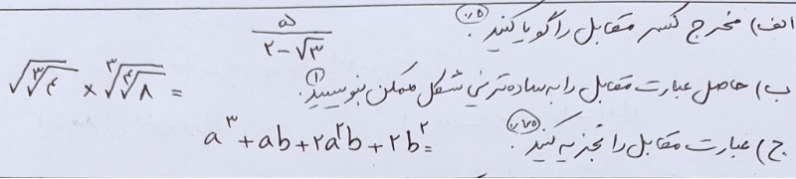 الف) مخرج کسر مقابل را گویا کنید. (۰/۵) ۵/(۲-√۳)
ب) حاصل عبارت مقابل را به ساده‌ترین شکل ممکن بنویسید. (۱) √∛۴ × ∛∜۸ =
ج) عبارت مقابل را تجزیه کنید. (۰/۷۵) a^۳ + ab + ۲a^۲b + ۲b^۲ =